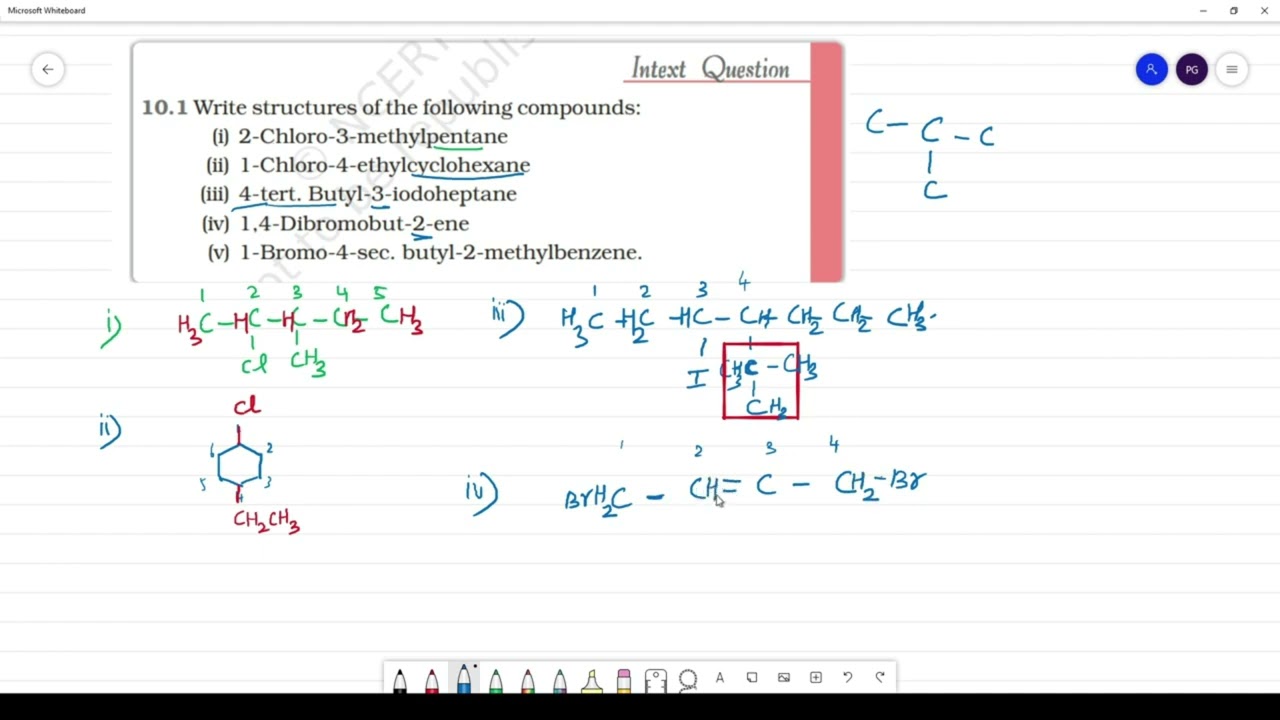 Microsoft Whiteboard
PG
Intext Question
10.1 Write structures of the following compounds:
(i) 2-Chloro-3-methylpentane
(ii) 1-Chloro-4-ethylcyclohexane
(iii) 4-tert. Butyl-3-iodoheptane
(iv) 1,4-Dibromobut-2-ene
(v) 1-Bromo-4-sec. butyl-2-methylbenzene.
C – C – C
C
1 2 3 4 5
i) H3C – HC – HC – CH2 – CH3
Cl CH3
ii)
Cl
6 2
5 3
4
CH2CH3
1 2 3 4
iii) H3C – H2C – HC – CH – CH2 – CH2 – CH3
I CH3 C – CH3
CH3
1 2 3 4
iv) BrH2C – CH = C – CH2 – Br
A